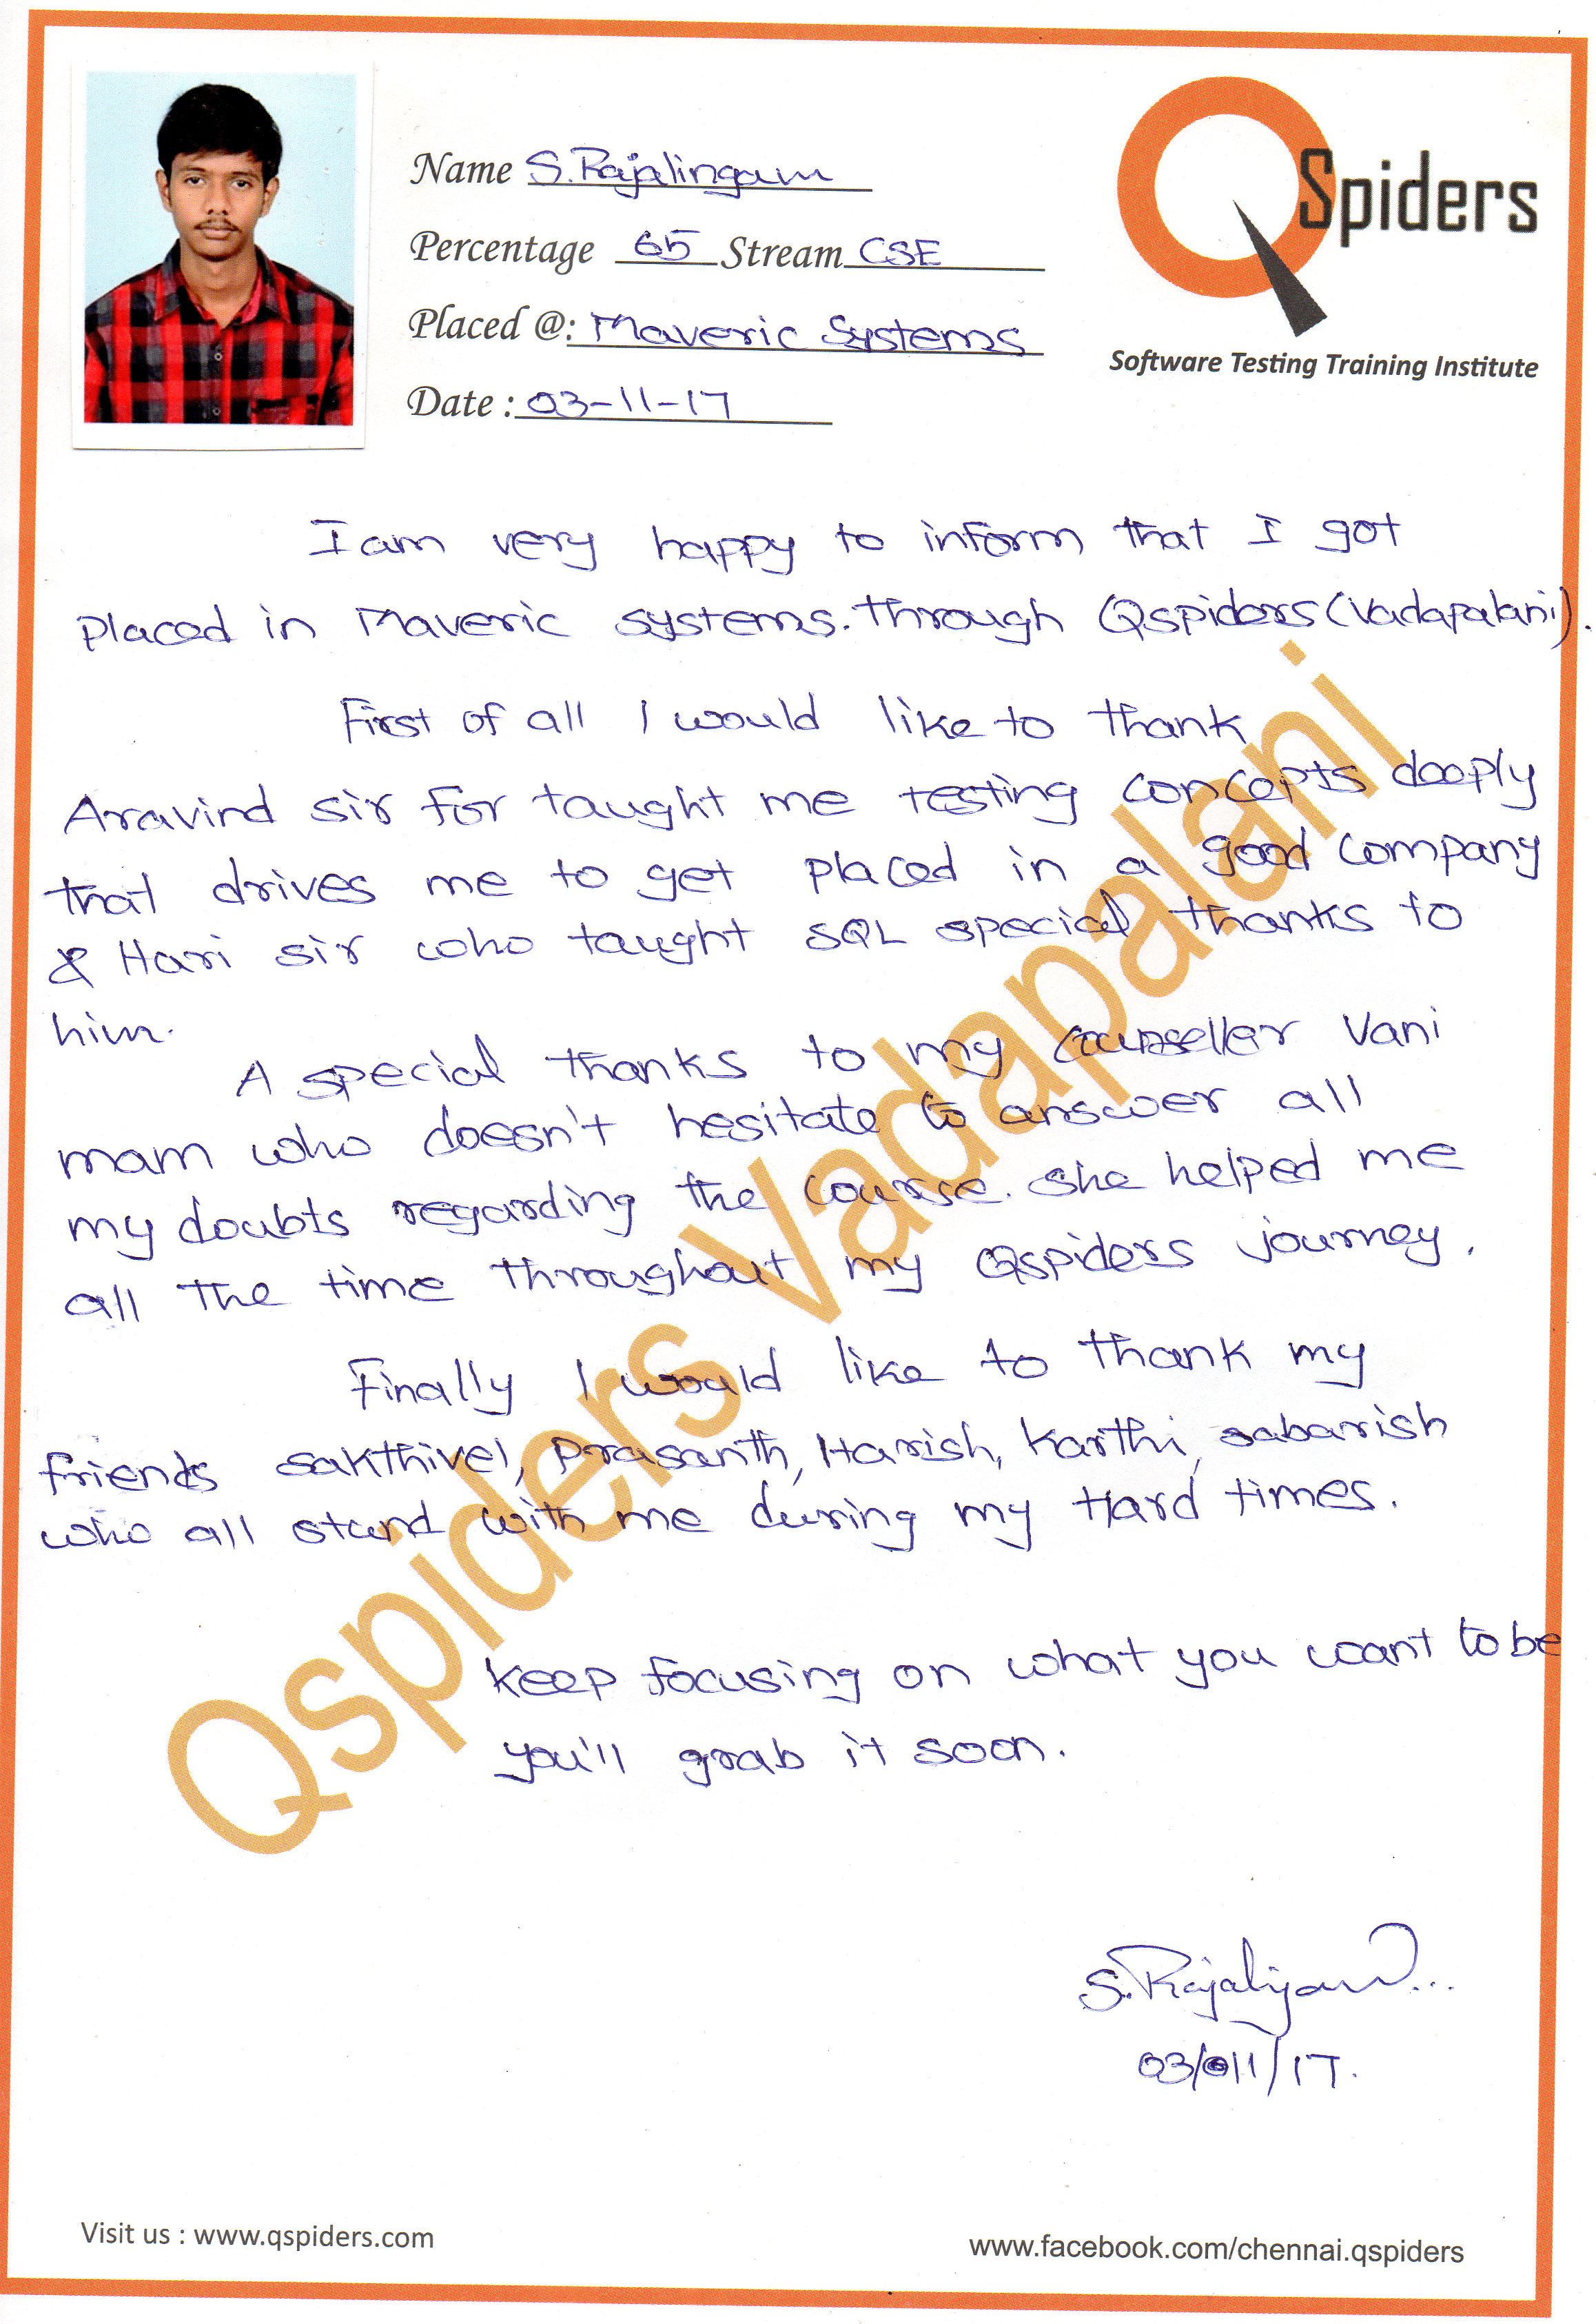 Name S.Rajalingam
Percentage 65 Stream CSE
Placed @: Maveric Systems
Date : 03-11-17
QSpiders
Software Testing Training Institute
I am very happy to inform that I got
placed in Maveric systems. through Qspiders (Vadapalani).
First of all I would like to thank
Aravind sir for taught me testing concepts deeply
that drives me to get placed in a good company
& Hari sir who taught SQL special thanks to
him.
A special thanks to my counseller Vani
mam who doesn't hesitate to answer all
my doubts regarding the course. she helped me
all the time throughout my Qspiders journey.
Finally I would like to thank my
friends sakthivel, Prasanth, Harish, Karthi, sabarish
who all stand with me during my Hard times.
Keep focusing on what you want to be
you'll grab it soon.
Qspiders Vadapalani
S.Rajalingam...
03/11/17.
Visit us : www.qspiders.com
www.facebook.com/chennai.qspiders